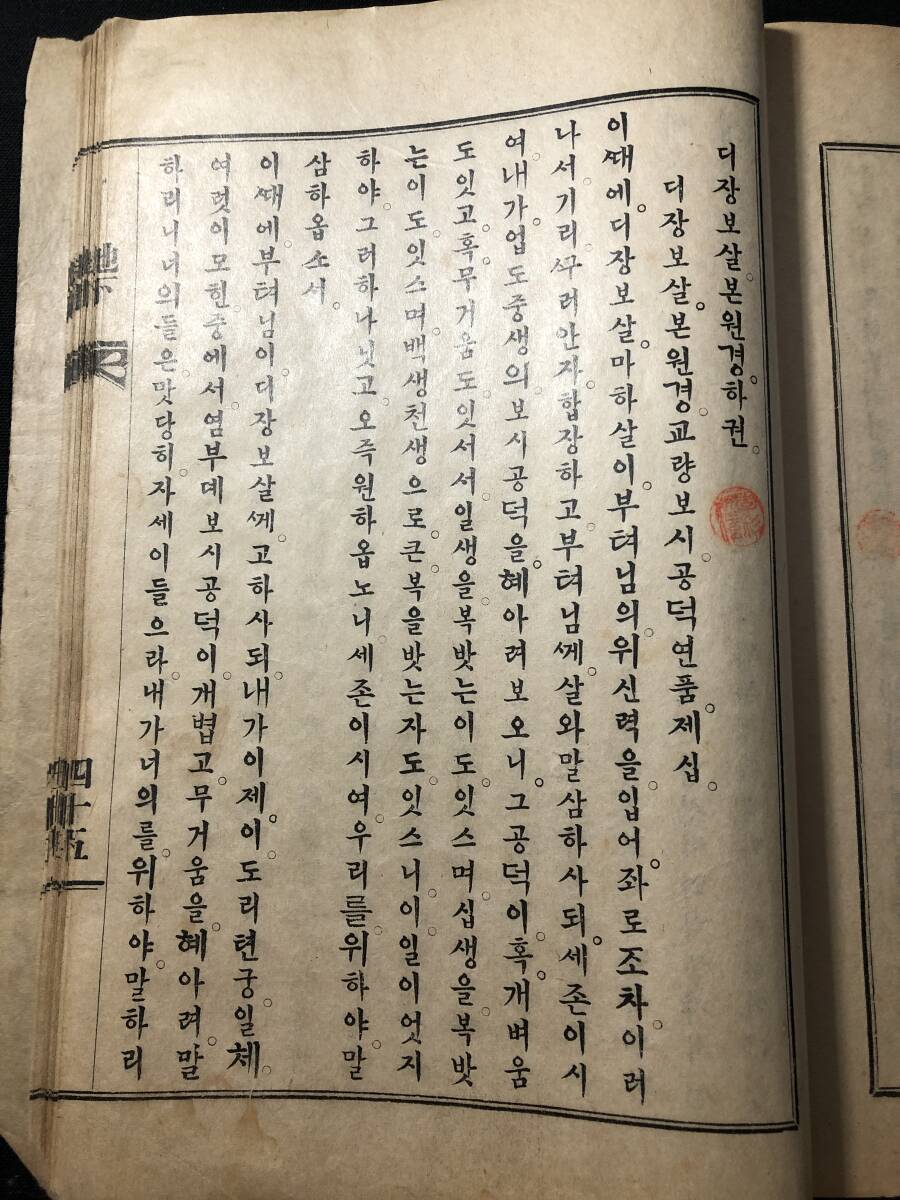 디장보살본원경하권
디장보살본원경교량보시공덕연품제십
이ᄯᅢ에디장보살마하살이부텨님의위신력을입어좌로조차이러
나서기리ᄭᅮ러안자합장하고부텨님ᄭᅦ살와말삼하사되세존이시
여내가업도중생의보시공덕을혜아려보오니그공덕이혹개벼움
도잇고혹무거움도잇서서일생을복밧는이도잇스며십생을복밧
는이도잇스며백생천생으로큰복을밧는자도잇스니이일이엇지
하야그러하나닛고오즉원하옵노니세존이시여우리를위하야말
삼하옵소서
이ᄯᅢ에부텨님이디장보살ᄭᅦ고하사되내가이제이도리텬궁일체
여럿이모힌중에서염부뎨보시공덕이개볍고무거움을혜아려말
하리니너의들은맛당히자세이들으라내가너의를위하야말하리
四十五